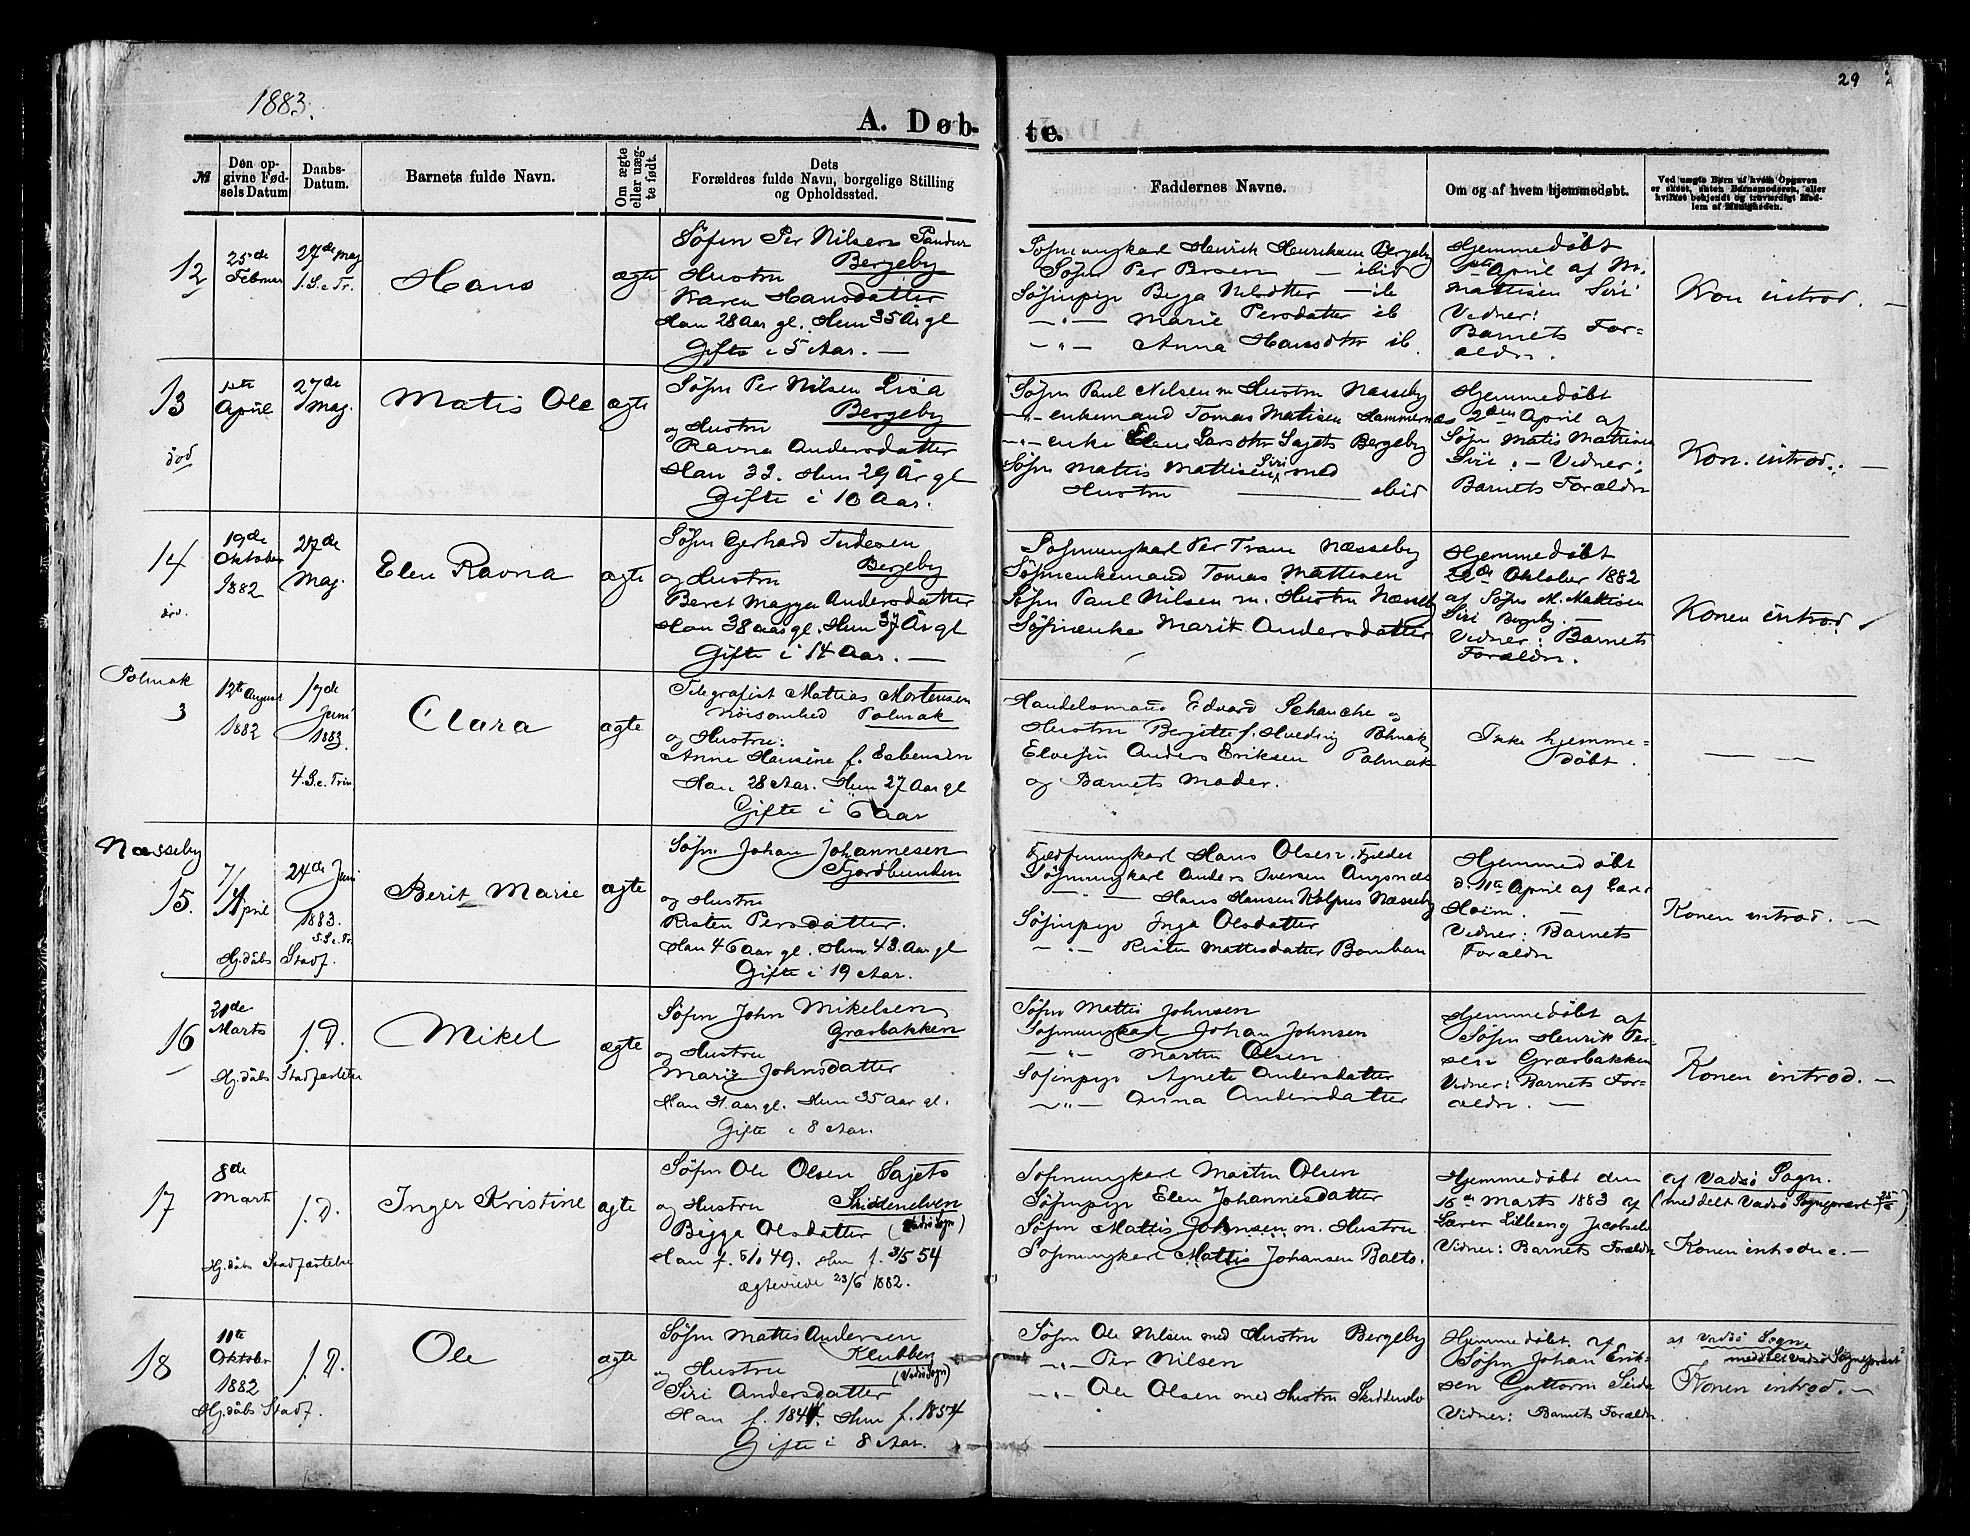 1883.
29
A. Døb-
te.
№
Den op-
givne Fød-
sels Datum
Daabs-
Datum.
Barnets fulde Navn.
Om ægte
eller uæg-
te født.
Dets
Forældres fulde Navn, borgelige Stilling
og Opholdssted.
Faddernes Navne.
Om og af hvem hjemmedøbt.
Ved uægte Børn af hvem Opgaven
er skeet, enten Barnemoderen, eller
hvilket bekjendt og troværdigt Med-
lem af Menigheden.
12
25de
Februar
27de Maj
1.S.e.Tr.
Hans
ægte
Søfin Per Nilsen
Bergeby
Hustru
Karen Hansdatter
Han 28 Aar gl. Hun 35 År gl
Gifte i 5 Aar. —
Søfinungkarl Henrik Henriksen Bergeby
Søfin Per — ibid
Søfinpige Bigga — ib
— " — Marie Persdatter ib
— " — Anna Hansdtr ib.
Hjemmedøbt
April af M.
Mattisen Siri
Vidner:
Barnets For=
ældre.
Kon introd. —
13
død
1ste
April
27de
Maj.
Matis Ole
ægte
Søfin Per Nilsen
Bergeby
og Hustru
Ravna Andersdatter
Han 33. Hun 29 År gl
Gifte i 10 Aar.
Søfin Paul Nilsen m Hustru Næsseby
— " — enkemand Tomas Matisen
— " — enke Elen Larsdtr Sajets Bergeby
Søfin Mattis Mattisen Siri med
Hustru — ibid
Hjemmedøbt
2den April af
Søfin Matis Mattisen
Siri. — Vidner:
Barnets Forældre
Kon. introd. —
14
19de
Oktober
1882
27de
Maj.
Elen Ravna
ægte
Søfin Gerhard
Bergeby
og Hustru
Beret Magga Andersdatter
Han 38 aar gl. Hun 37 År gl
Gifte i 14 Aar. —
Søfinungkarl Per Trane Næsseby
Søfinenkemand Tomas Mattisen
Søfin Paul Nilsen m. Hustru Næsseby
Søfinenke Marit Andersdatter
Hjemmedøbt
Oktober 1882
af Søfin M. Mattisen
Siri Bergeby. —
Vidner: Barnets
Forældre.
Konen introd.
Polmak
3
12te August
1882
17de
Juni
1883.
4.S.e.Trin
Clara
ægte
Telegrafist Mattias Mortensen
Polmak
og Hustru:
Anne Hansine f. Esbensen
Han 28 Aar. Hun 27 Aar gl
Gifte i 6 Aar
Handelsmand Edvard Schanche og
Hustru Bergitte f. Hveding Polmak
Elvefin Anders Eriksen Polmak
og Barnets Moder.
Ikke hjemme=
døbt.
— —
Næsseby
15.
7/
April
Hj.døbs
24de Juni
1883.
5.S.e.Tr.
Stadf.
Berit Marie
ægte
Søfin Johan Johannesen
Fjordbunden
og Hustru
Risten Persdatter.
Han 46 Aar gl. Hun 43. Aar gl
Gifte i 19 Aar.
Fjeldfinungkarl Hans Olsen.
Søfinungkarl Anders Iversen Angsnæs
— " — Hans Hansen Kolpus Næsseby
Søfinpige Inga Olsdatter
— " — Risten Mattisdatter Bomban
Hjemmedøbt
d. 11te April af Lærer
Heim. —
Vidner: Barnets
Forældre
Konen introd. —
16
Marts
Hj.døbs
s.D.
Stadfæstelse
Mikel
ægte
Søfin John Mikelsen
Græsbakken
og Hustru
Marie Johnsdatter
Han 31. aar gl. Hun 35 aar gl.
Gifte i 8 Aar.
Søfin Mattis Johnsen
Søfinungkarl Johan Johnsen
— " — Martin Olsen
Søfinpige Agnete Andersdatter
— " — Anna Andersdatter
Hjemmedøbt af
Søfin Henrik Per=
sen Græsbakken
Vidner: Barnets For=
ældre. —
Konen introd. —
17
8de
Marts
Hj.døbs
s.D.
Stadfæstelse
Inger Kristine
ægte
Søfin Ole Olsen Sajets
og Hustru Skiddenelven
Bigga Olsdatter (Vadsø Sogn)
Han f. 49. Hun f. 3/5 54
ægteviede 23/6 1882.
Søfinungkarl Martin Olsen
Søfinpige Elen Johannesdatter
Søfin Mattis Johnsen m. Hustru
Søfinungkarl Mattis Johansen Balto.
Hjemmedøbt den
Marts 1883 af
Lærer Jacobsen
Vidner: Barnets Forældre
af Vadsø Sogn.
(meddelt Vadsø Sognepræst)
Konen introduc. —
18
Oktober
1882
Hj.døbs
s.D.
Stadf.
Ole
ægte
Søfin Mattis Andersen
Klubberg
og Hustru (Vadsø Sogn)
Siri Andersdatter
Han f. 1844. Hun f. 1854
Gifte i 8 Aar.
Søfin Ole Nilsen med Hustru Bergeby
— " — Per Nilsen
— " — Ole Olsen med Hustru Skiddenelv
Hjemmedøbt af
Søfin Johan Erik=
sen Guttorm Seida
Vidner: Barnets Forældre.
af Vadsø Sogn
meddelt Vadsø Sognepræst
Konen introd. —